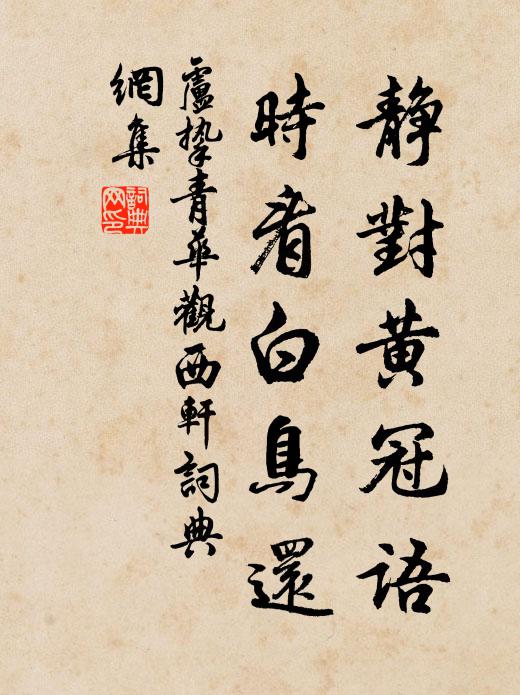 静對黄冠語
時看白鳥還
盧摯青華觀西軒詞典
網集
詞典
网印